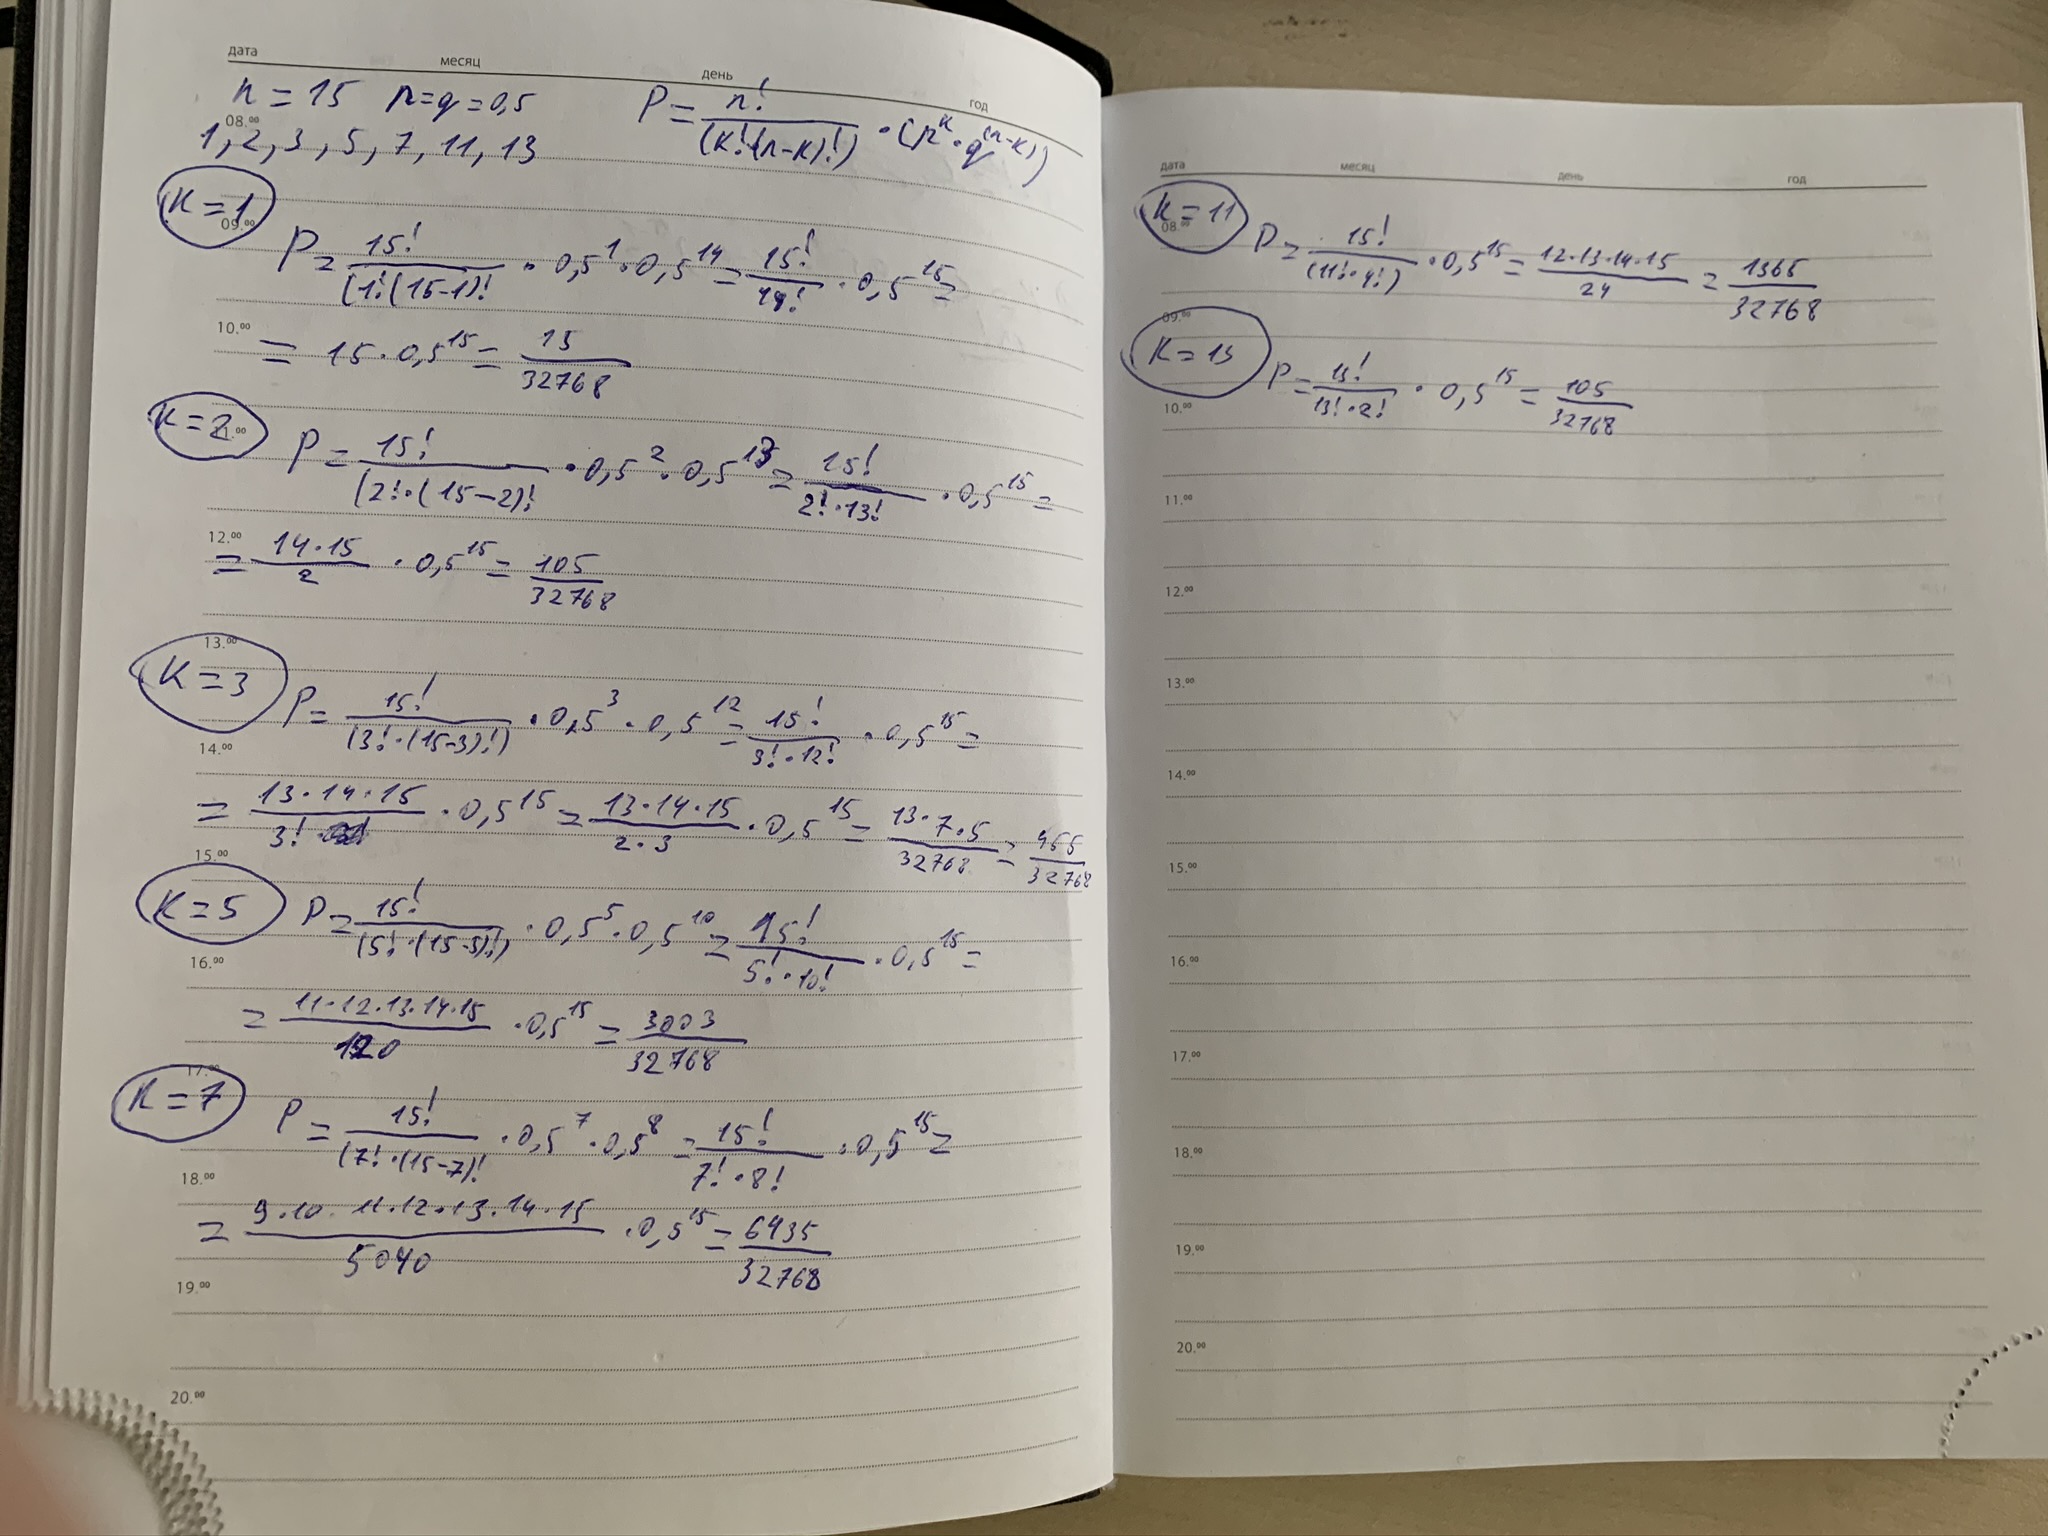 дата месяц день год
n = 15 p=q=0,5 P = n! / (k!(n-k)!) · (p^k · q^(n-k))
08.00
1, 2, 3, 5, 7, 11, 13
K=1
09.00
P = 15! / (1!(15-1)! · 0,5^1 · 0,5^14 = 15! / 14! · 0,5^15 =
10.00
= 15 · 0,5^15 = 15 / 32768
K=2
11.00
P = 15! / (2!·(15-2)! · 0,5^2 · 0,5^13 = 15! / 2!·13! · 0,5^15 =
12.00
= 14·15 / 2 · 0,5^15 = 105 / 32768
13.00
K=3
P = 15! / (3!·(15-3)!) · 0,5^3 · 0,5^12 = 15! / 3!·12! · 0,5^15 =
14.00
= 13·14·15 / 3! · 0,5^15 = 13·14·15 / 2·3 · 0,5^15 = 13·7·5 / 32768 = 455 / 32768
15.00
K=5
P = 15! / (5!·(15-5)!) · 0,5^5 · 0,5^10 = 15! / 5!·10! · 0,5^15 =
16.00
= 11·12·13·14·15 / 120 · 0,5^15 = 3003 / 32768
17.00
K=7
P = 15! / (7!·(15-7)! · 0,5^7 · 0,5^8 = 15! / 7!·8! · 0,5^15 =
18.00
= 9·10 11·12·13·14·15 / 5040 · 0,5^15 = 6435 / 32768
19.00
20.00
дата месяц день год
K=11
08.00
P = 15! / (11!·4!) · 0,5^15 = 12·13·14·15 / 24 = 1365 / 32768
09.00
K=13
P = 15! / 13!·2! · 0,5^15 = 105 / 32768
10.00
11.00
12.00
13.00
14.00
15.00
16.00
17.00
18.00
19.00
20.00